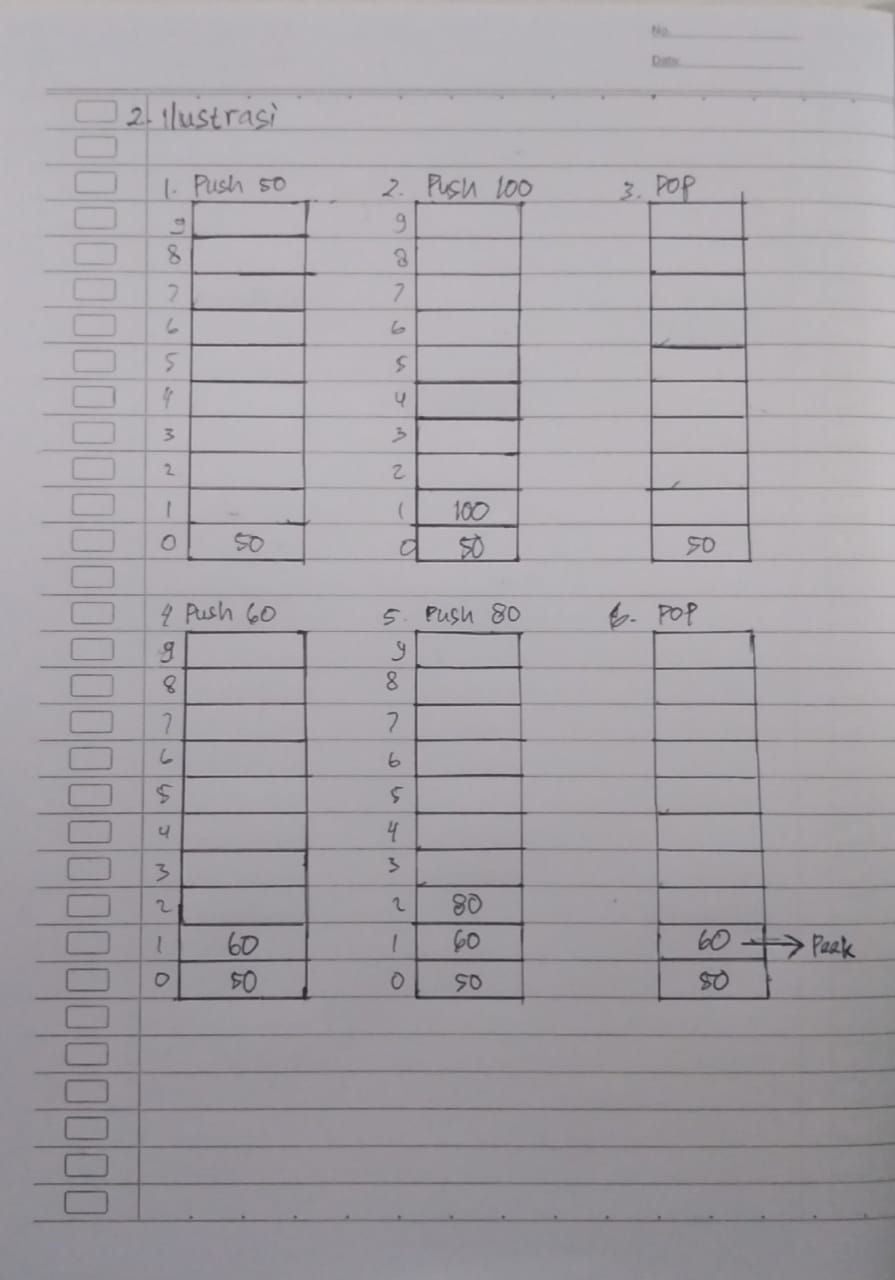 No.
Date:
2. Ilustrasi
1. Push 50
9
8
7
6
5
4
3
2
1
0 50
2. Push 100
9
8
7
6
5
4
3
2
1 100
0 50
3. POP
50
4 Push 60
9
8
7
6
5
4
3
2
1 60
0 50
5. Push 80
9
8
7
6
5
4
3
2 80
1 60
0 50
6. POP
60 → Peek
50